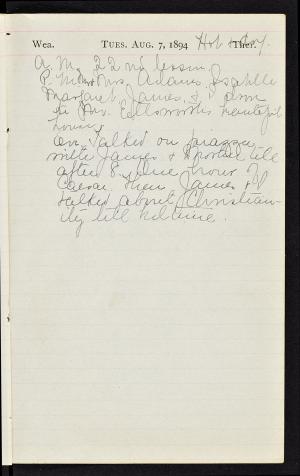 Wea. TUES. AUG. 7, 1894 Ther.
Hot & dry.
A.M. 22nd lesson.
P.M. Mrs. Adams, Isabelle
Margaret, James, &
to Mrs. Ellsworth's beautiful
home.
Ev. Talked on
with James & till
after 8. One hour of
Caesar. Then James & I
talked about Christian-
ity till bedtime.